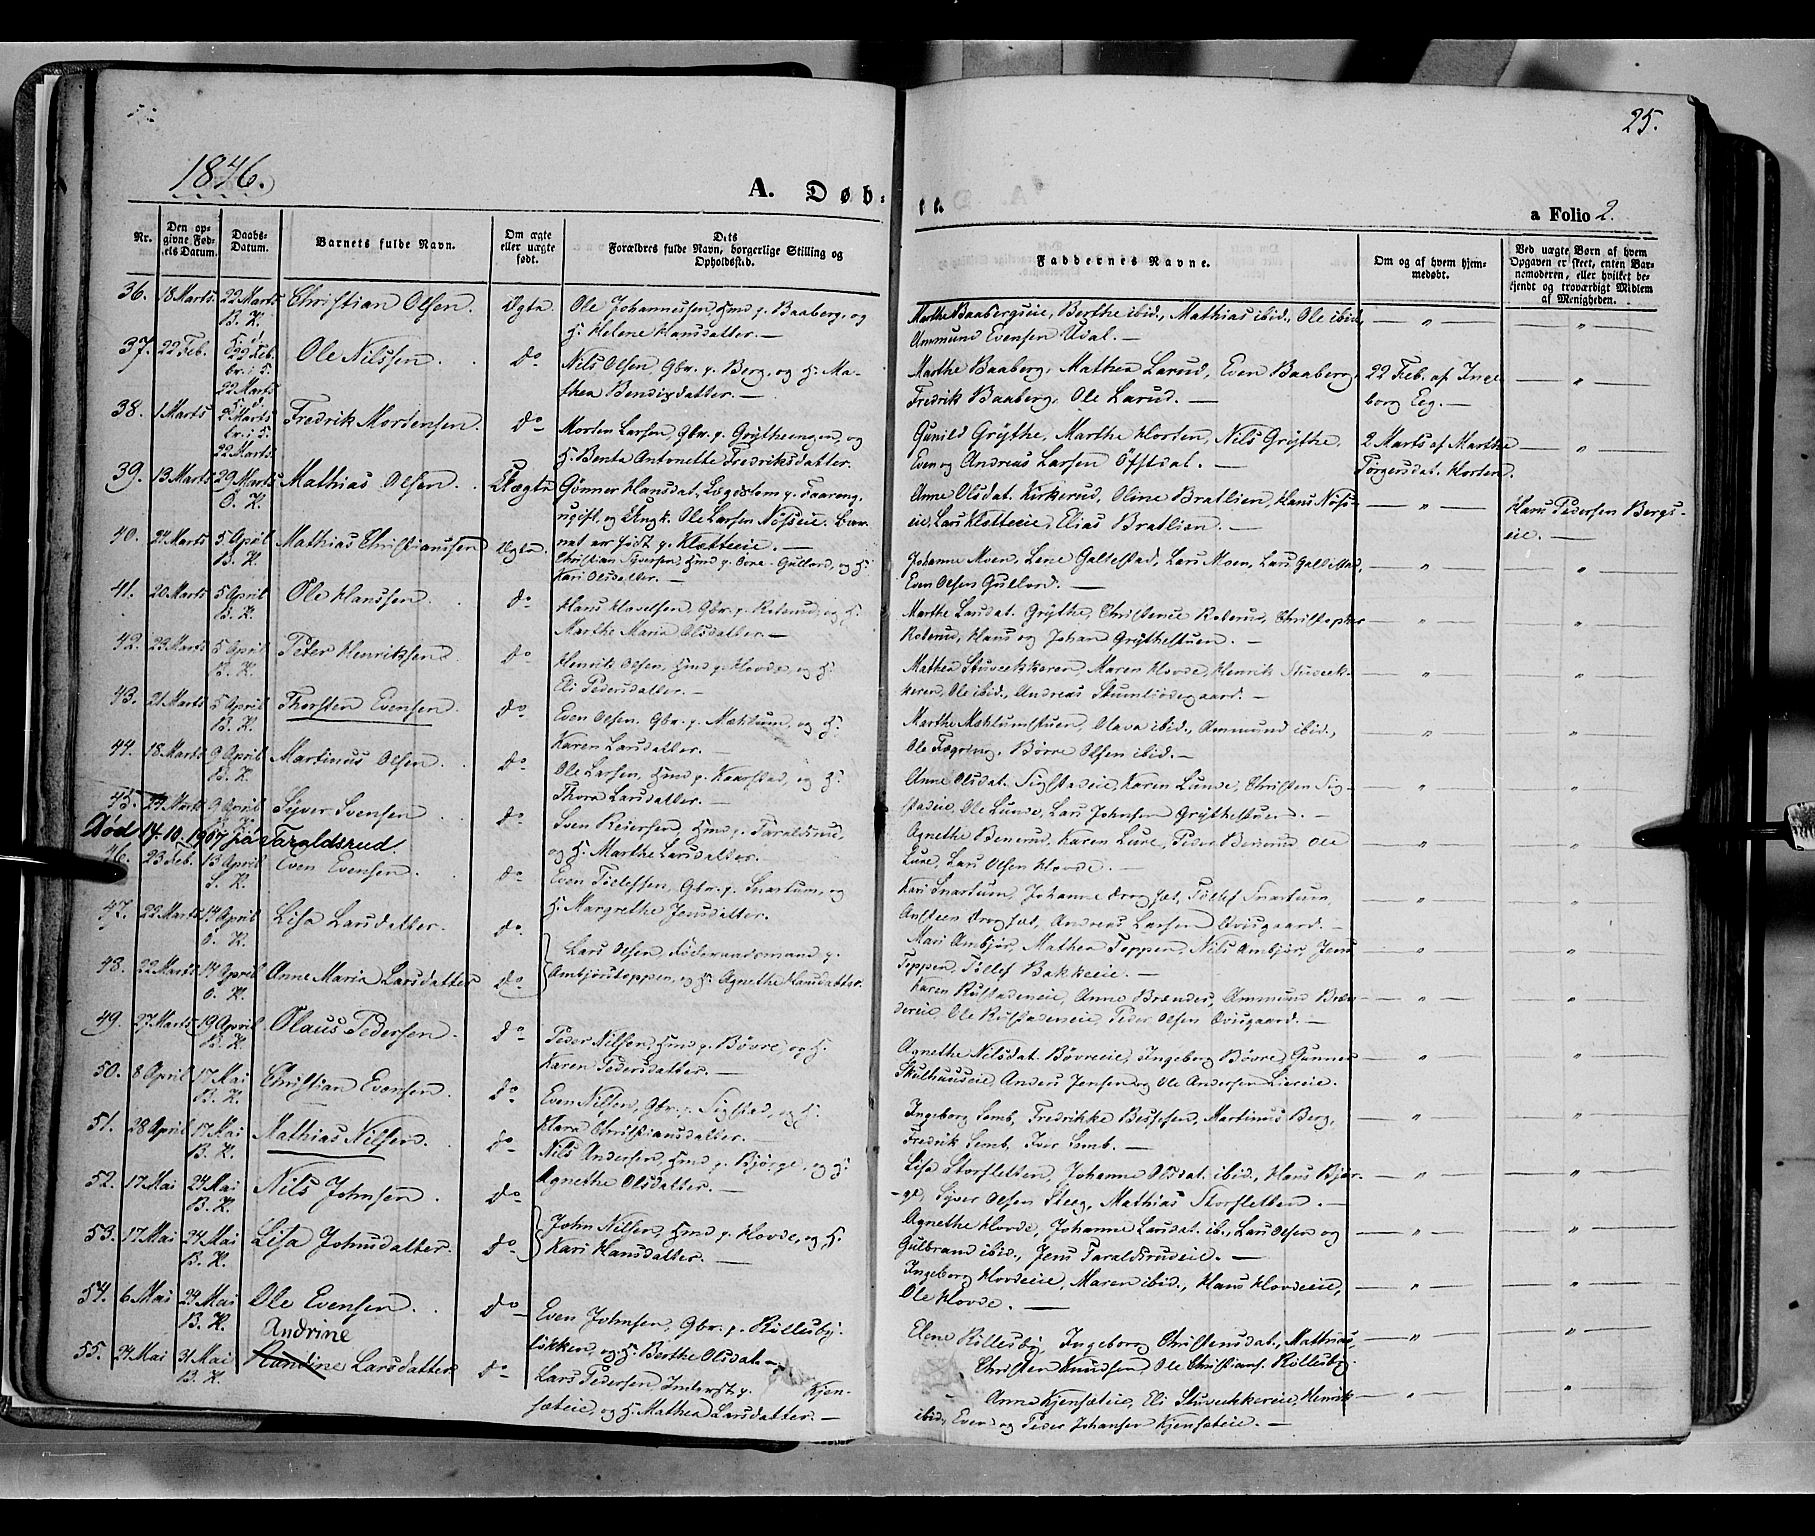 25.
1846.
A. Døb:
te.
a Folio 2.
Nr. | Den opgivne Fødsels Datum. | Daabs-Datum. | Barnets fulde Navn. | Om ægte eller uægte født. | Dets Forældres fulde Navn, borgerlige Stilling og Opholdssted. | Faddernes Navne. | Om og af hvem hjemmedøbt. | Ved uægte Børn af hvem Opgaven er skeet, enten Barnemoderen, eller hvilket bekjendt og troværdigt Midlem af Menigheden.
36. 18 Marts 22 Marts B. K. Christian Olsen. Ægte. Ole Johannessen, Hmd p. Baaberg, og H. Helene Hansdatter. — Marthe Baabergseie, Berthe ibid., Mathias ibid., Ole ibid., Ammund Evensen Udal. — " "
37. 22 Feb. 22 Feb. br. i S. 22 Marts Ole Nilssen. do Nils Olsen, Gbr. p. Berg, og H. Mathea Bendixdatter. — Marthe Baaberg, Mathea Larud, Even Baaberg, Fredrik Baaberg, Ole Larud. — 22 Feb. af Ingeborg Eeg. — "
38. 1 Marts 2 Marts br. i S. 22 Marts Fredrik Mortensen. do Morten Larsen, Gbr. p. Grytheengen, og H. Benta Antonette Fredriksdatter. Gunild Grythe, Marthe Horten, Nils Grythe, Even og Andreas Larsen Öfstdal. — 2 Marts af Marthe Torgersdat. Horten. "
39. 13 Marts 29 Marts Ö. K. Mathias Olsen. Uægte Gønner Hansdat., Lægdslem p. Faareng, ugift, og Ungk. Ole Larsen Nøsseie. Barnet er født p. Kletteeie. — Anne Olsdat. Kirkerud, Oline Bratlien, Hans Nøsseie, Lars Kletteeie, Elias Bratlien. — " Hans Pedersen Bergseie. —
40. 24 Marts 5 April B. K. Mathias Christianssen Ægte. Christian Syversen, Hmd p. Övre-Gullord, og H. Kari Olsdatter. — Johanne Moen, Lene Galtestad, Lars Moen, Lars Galtestad, Even Olsen Gullord. — " "
41. 20 Marts 5 April B. K. Ole Hanssen. do Hans Havelsen, Gbr. p. Roterud, og H. Marthe Maria Olsdatter. — Marthe Larsdat. Grythe, Christense Roterud, Christopher Roterud, Hans og Johan Grythestuen. — " "
42. 23 Marts 5 April B. K. Peter Henriksen. do Henrik Olsen, Hmd p. Hovde, og H. Eli Pedersdatter. — Mathea Stuveekkeren, Maren Hovde, Henrik Stuveekkeren, Ole ibid., Andreas Skumlsødegaard. — " "
43. 21 Marts 5 April B. K. Thorsten Evensen. do Even Olsen, Gbr. p. Mæhlum, og H. Karen Larsdatter. — Marthe Mæhlumstuen, Olava ibid., Ammund ibid., Ole Fægring, Børre Olsen ibid. — " "
44. 18 Marts 9 April B. K. Martinus Olsen. do Ole Larsen, Hmd p. Kaarstad, og H. Thora Larsdatter. — Anne Olsdat. Sigstadeie, Karen Lunde, Christen Sigstadeie, Ole Lunde, Lars Johnsen Grythestuen. — " "
45. 24 Marts 9 April Syver Svensen. do Sven Reiersen, Hmd p. Taraldsrud, og H. Marthe Larsdatter. Agnethe Benerud, Karen Lure, Peder Benerud Ole Lure, Lars Olsen Hovde. — " "
Død 14.10.1907 på Taraldsrud
46. 23 Feb. 13 April S. K. Even Evensen. do Even Tollefsen, Gbr. p. Snartum, og H. Margrethe Jensdatter. Kari Snartum, Johanne Drogsæt, Tollef Snartum, Ansteen Drogsæt, Andreas Larsen Qvisgaard. — " "
47. 22 Marts 14 April Ö. K. Lisa Larsdatter. do
48. 22 Marts 14 April Ö. K. Anne Maria Larsdatter do Lars Olsen, Føderaadsmand p. Ambjørstoppen, og H. Agnethe Hansdatter. Mari Ambjør, Mathea Toppen, Nils Ambjør, Jens Toppen, Tollef Bakkeeie. — " " Karen Rustadeneie, Anne Brændee, Ammund Brændereie, Ole Rustadeneie, Peder Olsen Qvisgaard. — " "
49. 27 Marts 19 April B. K. Olaus Pedersen. do Peder Nilsen, Hmd p. Bøvre, og H. Karen Pedersdatter. — Agnethe Nilsdat. Bøvreeie, Ingeborg Bøvre, Gunner Skulhuuseie, Anders Jensen og Ole Andersen Liereie. " "
50. 8 April 17 Mai B. K. Christian Evensen. do Even Nilsen, Gbr. p. Sigstad, og H. Klara Christiansdatter. Ingeborg Lomb, Fredrikke Bessesen, Martinus Berg, Fredrik Lomb, Iver Lomb. — " "
51. 28 April 17 Mai B. K. Mathias Nilsen. do Nils Andersen, Hmd p. Bjørge, og H. Agnethe Olsdatter. — Lisa Storsletten, Johanne Olsdat. ibid., Hans Bjørge, Syver Olsen Steeg, Mathias Storsletten. — " "
52. 17 Mai 24 Mai B. K. Nils Johnsen. do
53. 17 Mai 24 Mai B. K. Lisa Johnsdatter. do John Nilsen, Hmd p. Hovde, og H. Kari Hansdatter. — Agnethe Hovde, Johanne Larsdat. ib., Lars Olsen og Gulbrand ibid., Jens Taraldsrudeie. — " " Ingeborg Hovdeeie, Maren ibid., Hans Hovdeeie, Ole Hovde. — " "
54. 6 Mai 24 Mai B. K. Ole Evensen. do Even Johnsen, Gbr. p. Rullusbyløkken, og H. Berthe Olsdat. — Elene Rillusby, Ingeborg Christensdat., Mathias, Christen Knudsen, Ole Christians. Rollusby. " "
55. 24 Mai 31 Mai B. K. Andrine Handine Larsdatter do Lars Pedersen, Inderst p. Kjensæteie, og H. Mathea Larsdatter. — Anne Kjensæteie, Eli Stuveekkereie, Henrik ibid., Even og Peder Johansen Kjensæteie. — " "